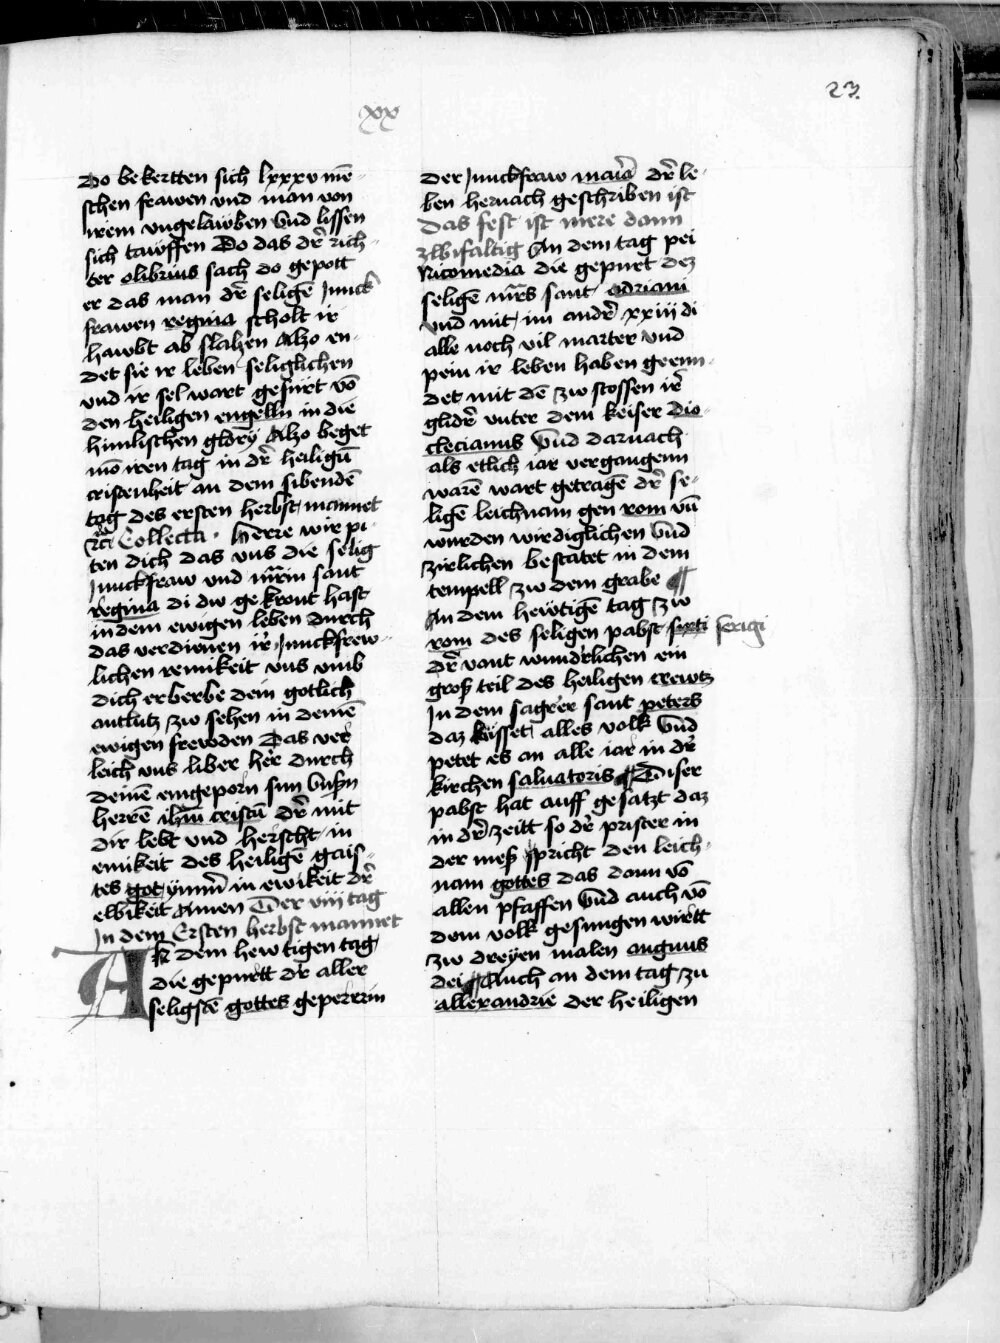 23.
xx
Do bekertten sich lxxxv mē-
schen frawen vnd man von
irem vngelawben Vnd lissen
sich tawffen Do das dr̄ rich-
ter olibrius sach do gepott
er das man dr̄ seligē Junck
frawen regina scholt ir
hawbt ab slahen Alzo en-
det sie ir leben seliglichen
vnd ir sel wart gefürt vō
den heiligen engelln in die
himlischen glory Alzo beget
mō iren tag in dr̄ heiligū
cristenheit an dem sibendē
tag des ersten herbst mannet
Collecta. Herre wir pi-
ten dich das vns die selig
Junckfraw vnd mr̄rin sant
regina di dw gekront hast
in dem ewigen leben durch
das verdienen ir̄ Junckfrew-
lichen reinikeit vns vmb
dich erberbe dein gotlich
antlutz zw sehen in deinē
ewigen frewden Das ver
leich vns liber her̄ durch
deinē eingeporn sun Vnsn̄
herrē ihm̄ cristū dr̄ mit
dir lebt vnd herscht in
einikeit des heiligē gais-
tes got ymm̄ in ewikeit dr̄
ewikeit Amen Der viij tag
In dem Ersten herbst mannet
AN dem hewtigen tag
die gepurtt dr̄ aller
seligstē gottes gepererin
der Junckfraw maria dr̄ le-
ben hernach geschriben ist
Das fest ist mere dann
zwifaltig An dem tag pei
Nicomedia die gepurt dez
seligē mr̄s sant adriani
vnd mit im andr̄ xxiij di
alle noch vil marter vnd
pein ir leben haben geenn-
det mit dē zw stossen ir̄
glidr̄ vnter dem keiser dio-
clecianus Vnd darnach
als etlich iar vergangenn
warē wart getragē dr̄ se-
ligē leichnam gen rom vn̄
wurden wirdiglichen Vnd
zirlichen bestatet in dem
tempell zw dem grabe ¶
An dem hewtigē tag zw
rom des seligen pabst sixti sergi
dr̄ vant wundrlichen ein
groß teil des heiligen crewtz
In dem sagrer sant peters
daz küsset alles volk Vnd
petet es an alle iar in dr̄
kirchen saluatoris ¶ Diser
pabst hat auff gesatzt daz
in dr̄ zeitt so dr̄ prister in
der meß spricht den leich-
nam gottes das dann vō
allen pfaffen Vnd auch vō
dem volk gesungen wirtt
zw dreyen malen angnus
dei ¶ Auch an dem tag zu
allexandrie der heiligen